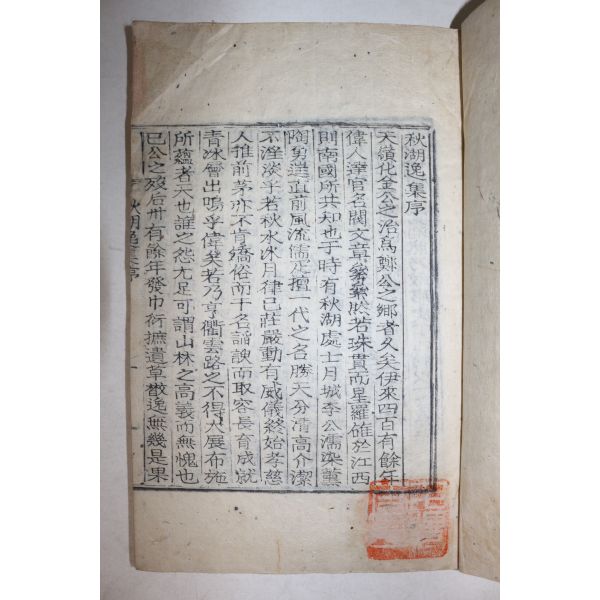 秋湖逸集序
天嶺化金公之治爲鄭公之鄕者久矣伊來四百有餘年
偉人達官名閥文章纍纍然若珠貫而星羅確於江西
則南國所共知也于時有秋湖處士月城李公濡染薰
陶勇進直前風流儒疋擅一代之名勝天分淸高介潔
不滛淡乎若秋水氷月律己莊嚴動有威儀終始孝慈
人推前茅亦不肯矯俗而干名謟諛而取容長育成就
靑冰會出嗚乎偉矣若乃亨衢雲路之不得大展布施
所蘊者天也誰之怨尤足可謂山林之高義而無愧也
已公之歿后卅有餘年發巾衍摭遺草散逸無幾是果
秋湖逸集序